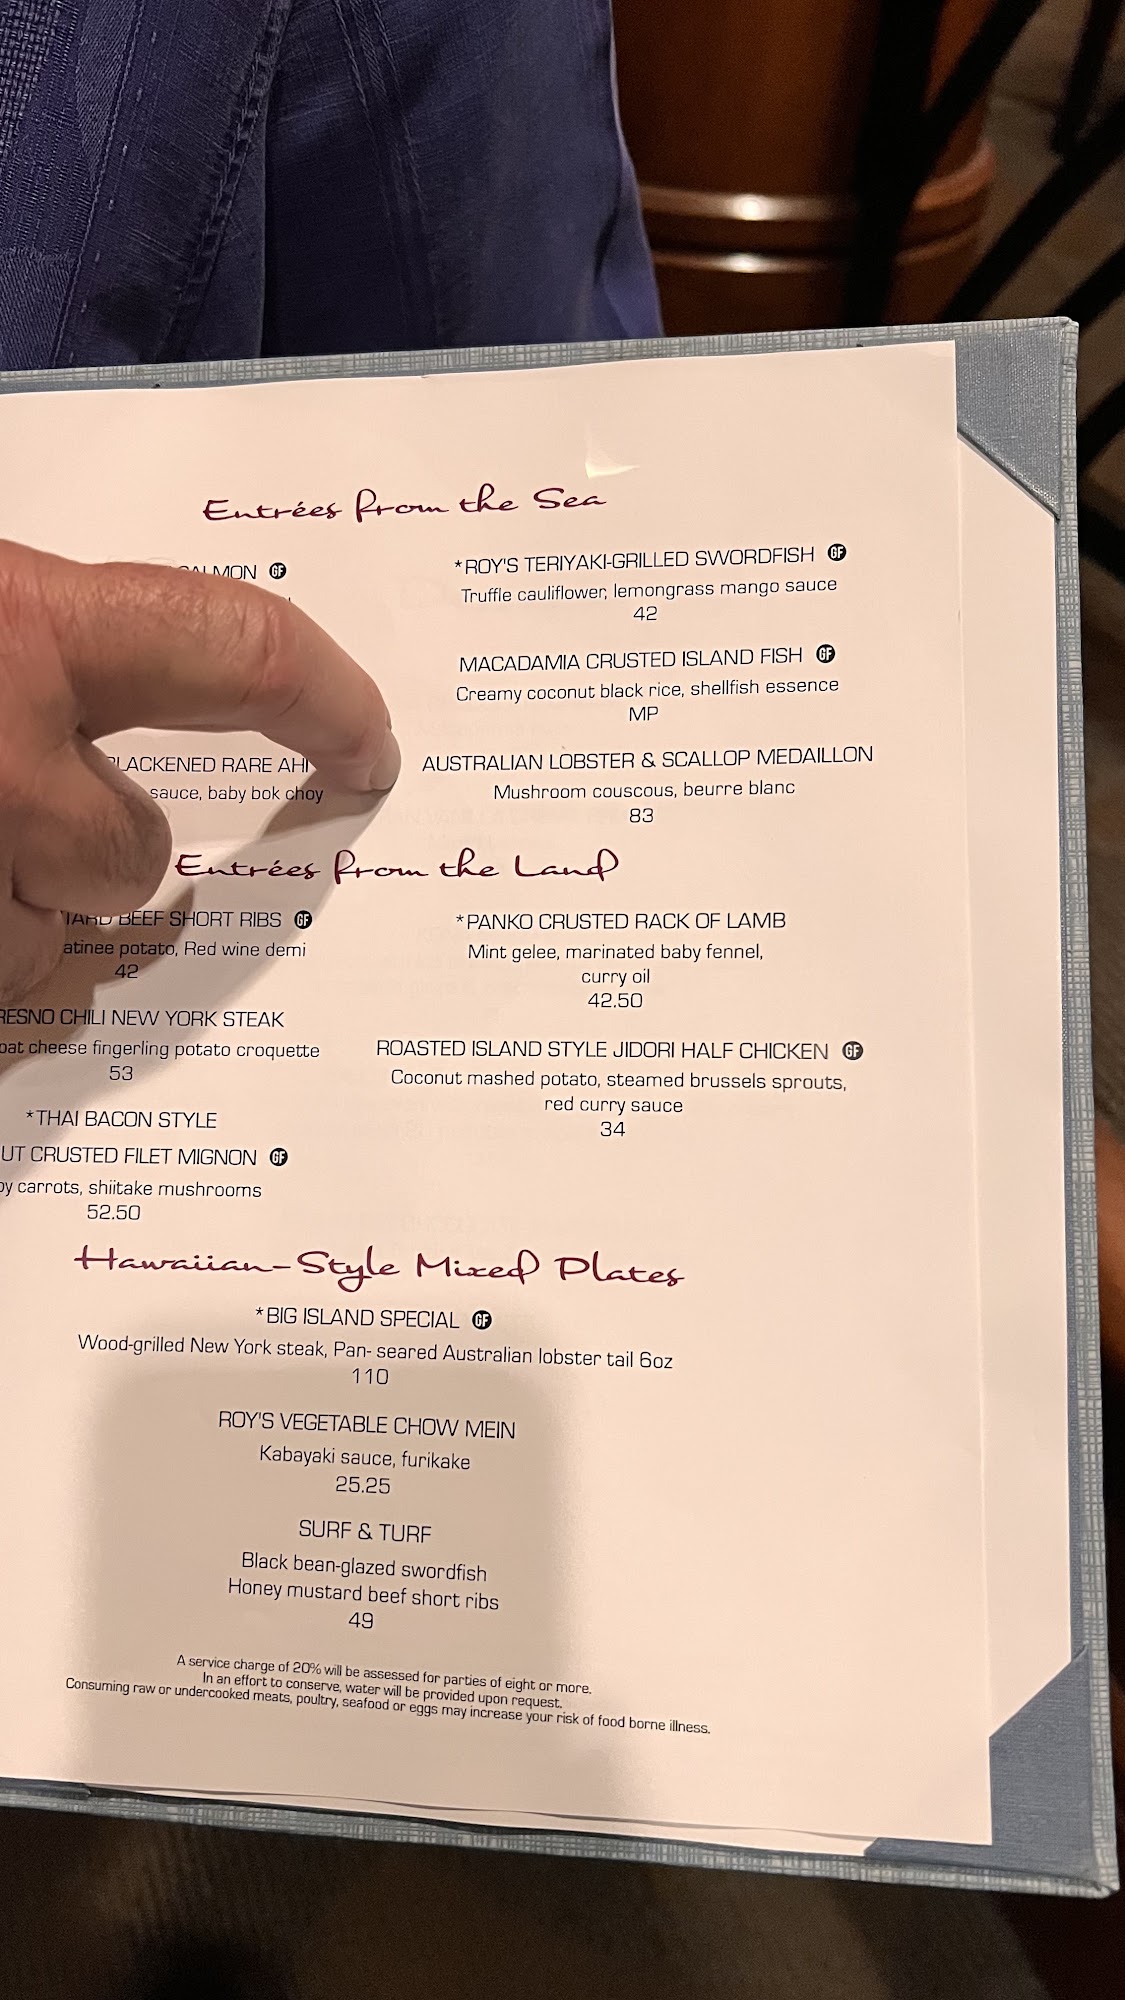 Entrées from the Sea
SALMON GF
BLACKENED RARE AHI
sauce, baby bok choy
*ROY'S TERIYAKI-GRILLED SWORDFISH GF
Truffle cauliflower, lemongrass mango sauce
42
MACADAMIA CRUSTED ISLAND FISH GF
Creamy coconut black rice, shellfish essence
MP
AUSTRALIAN LOBSTER & SCALLOP MEDAILLON
Mushroom couscous, beurre blanc
83
Entrées from the Land
BEEF SHORT RIBS GF
potato, Red wine demi
42
CHILI NEW YORK STEAK
cheese fingerling potato croquette
53
*THAI BACON STYLE
CRUSTED FILET MIGNON GF
carrots, shiitake mushrooms
52.50
*PANKO CRUSTED RACK OF LAMB
Mint gelee, marinated baby fennel,
curry oil
42.50
ROASTED ISLAND STYLE JIDORI HALF CHICKEN GF
Coconut mashed potato, steamed brussels sprouts,
red curry sauce
34
Hawaiian-Style Mixed Plates
*BIG ISLAND SPECIAL GF
Wood-grilled New York steak, Pan- seared Australian lobster tail 6oz
110
ROY'S VEGETABLE CHOW MEIN
Kabayaki sauce, furikake
25.25
SURF & TURF
Black bean-glazed swordfish
Honey mustard beef short ribs
49
A service charge of 20% will be assessed for parties of eight or more.
In an effort to conserve, water will be provided upon request.
Consuming raw or undercooked meats, poultry, seafood or eggs may increase your risk of food borne illness.